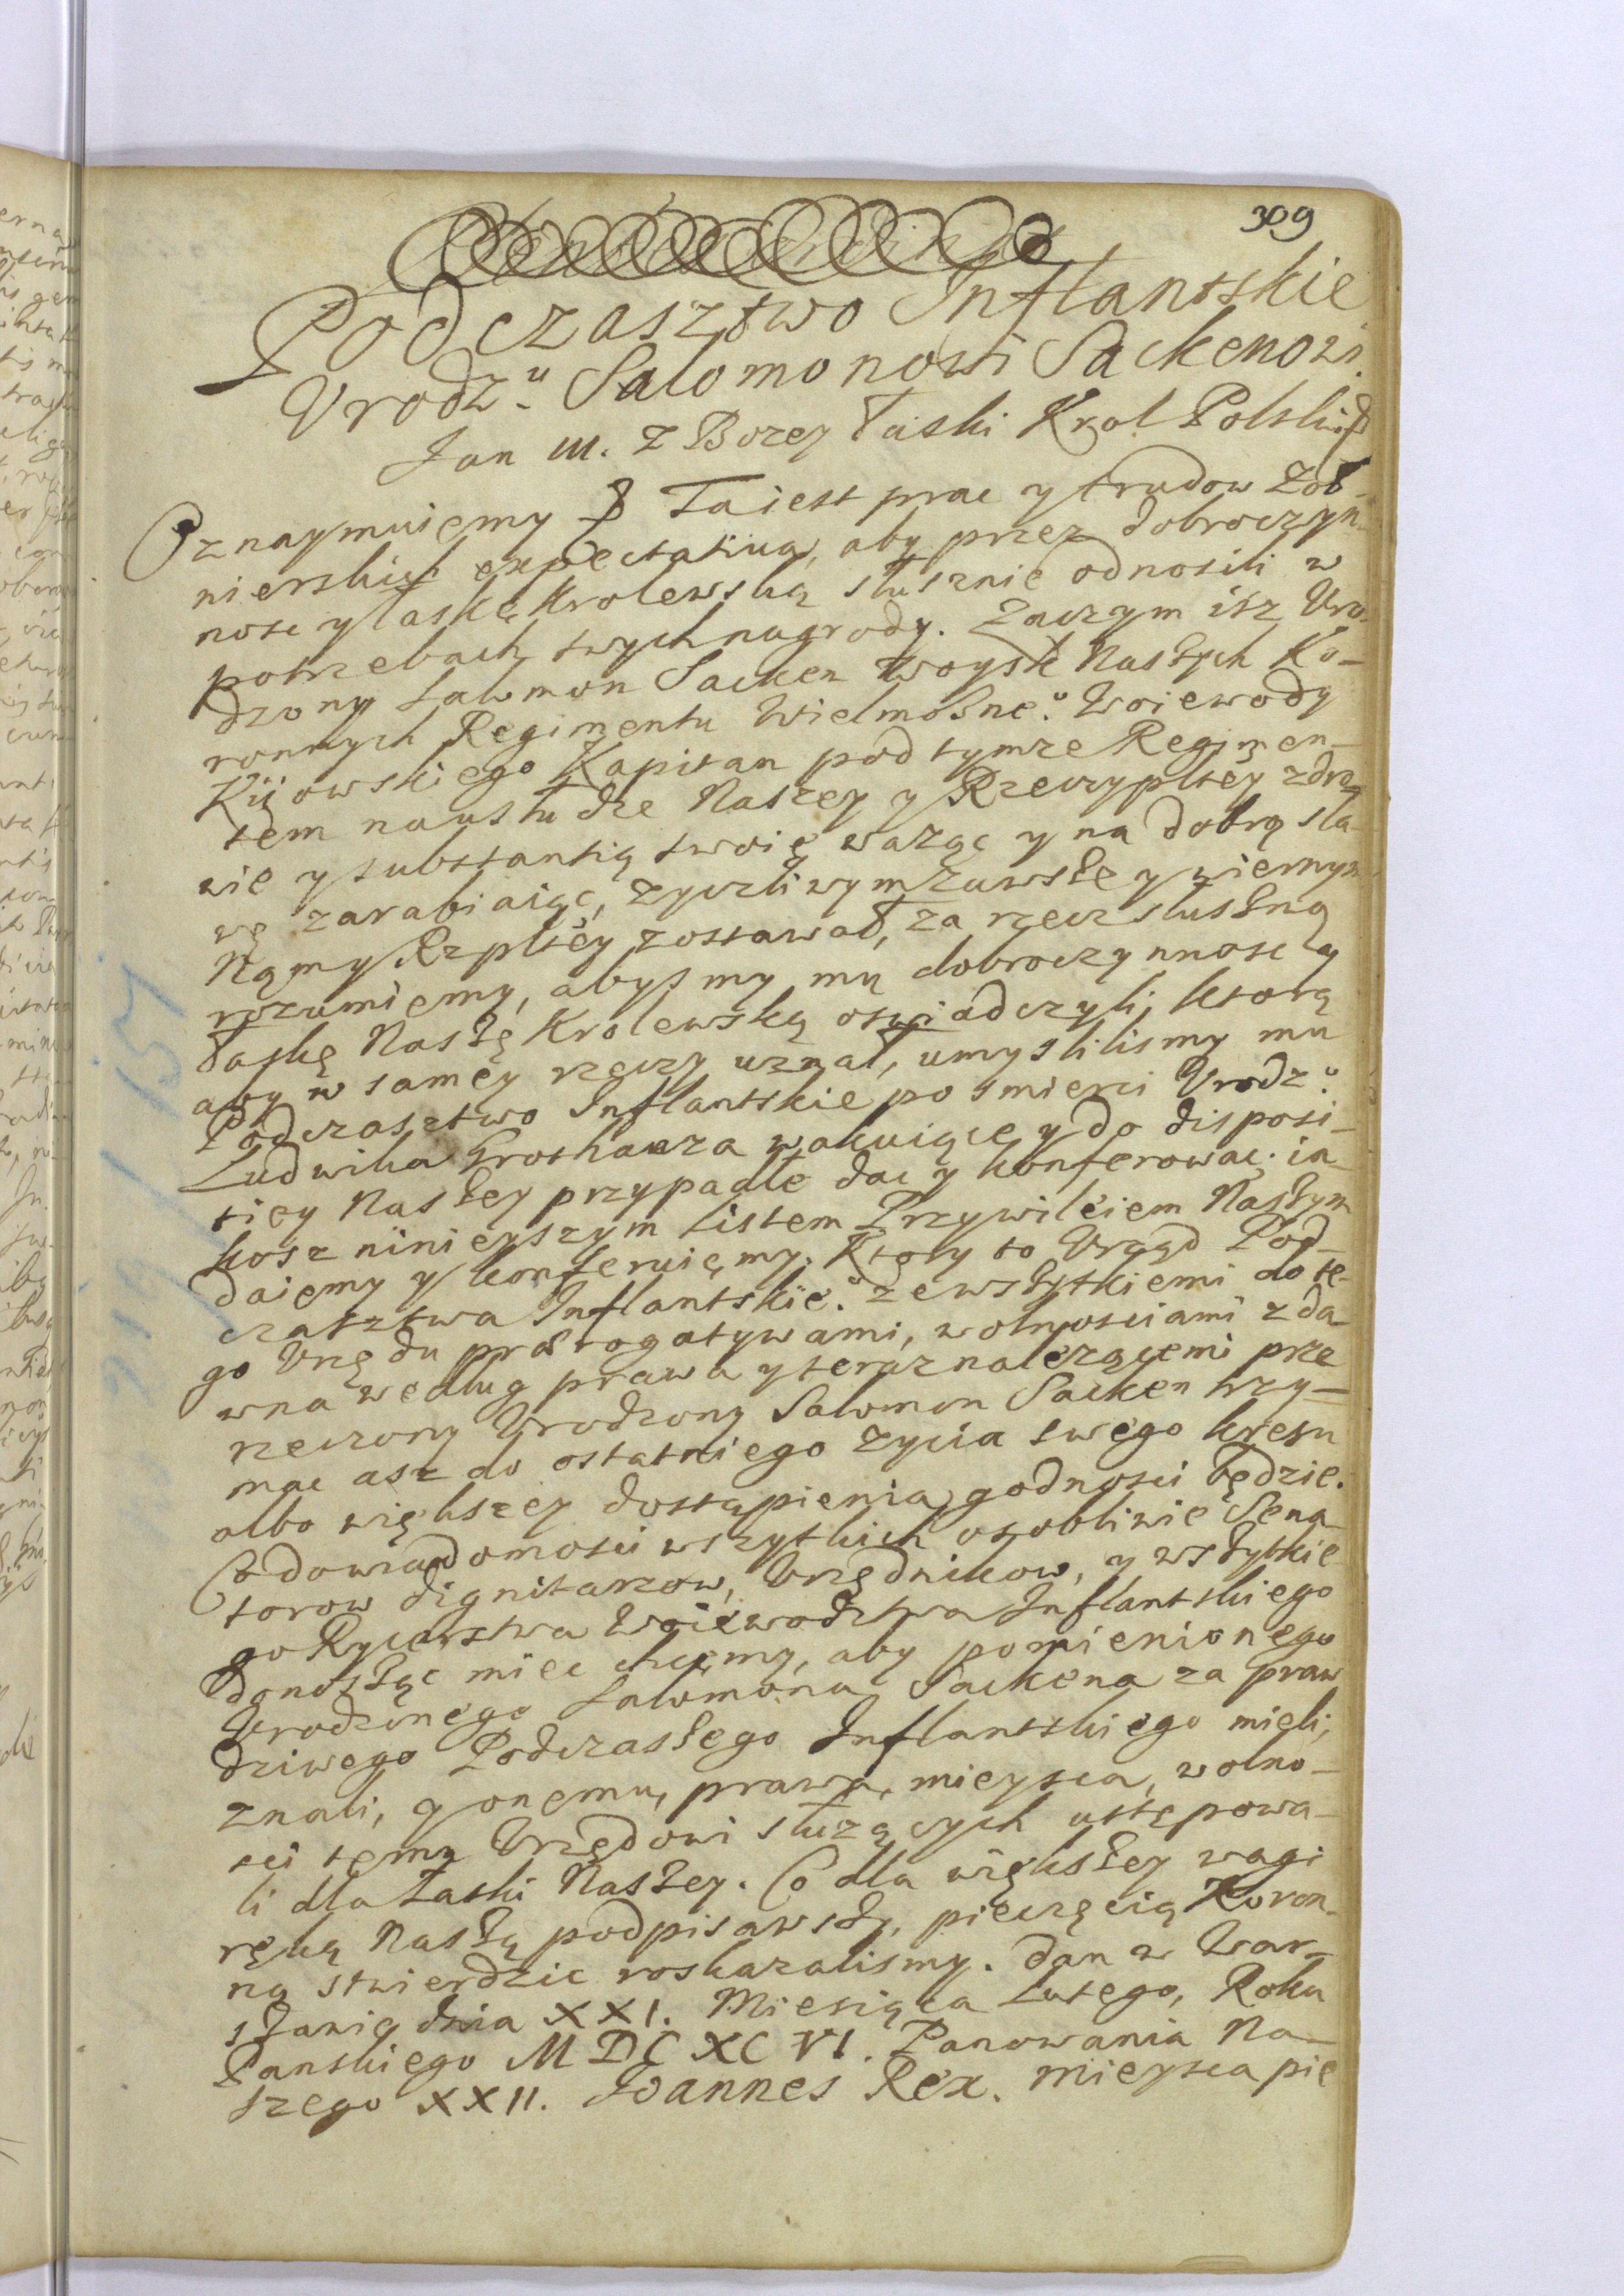 309
Podczasztwo Inflantskie
Vrodz.u Salomonowi Sackenowi.
Jan III. z Bozey Łaski Krol Polski
Oznaymuiemy Ta iest prac y trudow Zoł-
nierskich expectatiua, aby przez dobroczyn-
nosc y łaskę Krolewską słusznie odnosili w
potrzebach swych nagrody. Zaczym isz Vro-
dzony Salomon Sacken Woysk Naszych Ko-
ronnych Regimentu Wielmozne.o Woiewody
Kijowskiego Kapitan pod tymze Regimen-
tem na usłudze Naszey y Rzeczypltey zdro-
wie y substantią swoię waząc y na dobrą sła-
wę zarabiaiąc, zyczliwym zawsze y wiernym
Nam y Rzpltey zostawał, za rzecz słuszną
rozumiemy, abysmy mu dobroczynnosc y
łaskę Naszę Krolewską oswiadczyli, ktorą
aby w samey rzeczy uznał, umyslilismy mu
Podczasztwo Inflantskie po smierci Vrodz.o
Ludwika Grothauza wakuiące y do disposi-
tiey Naszey przypadłe dac y konferowac. ia-
kosz ninieyszym Listem Przywileiem Naszym
daiemy y konferuiemy. Ktory to Vrząd Pod-
czasztwa Inflantskie.o ze wszytkiemi do te-
go Vrzędu prærogatywami, wolnosciami zda-
wna według prawa y teraz nalezącemi prze
rzeczony Vrodzony Salomon Sacken trzy-
mac asz do ostatniego zycia swego kresu
albo większey dostąpienia godnosci będzie.
Co do wiadomosci wszytkich osobliwie Sena-
torow dignitarzow, Vrzędnikow, y wszytkie
go Rycerstwa Woiewodztwa Inflantskiego
donosząc miec chcemy, aby pomienionego
Vrodzonego Salomona Sackena za praw
dziwego Podczaszego Inflantskiego mieli,
znali, y onemu, prawa, mieysca, wolno-
sci temu Vrzędowi słuzących ustępowa-
li dla Łaski Naszey. Co dla większey wagi
ręką Naszą podpisawszy, pieczęcią Koron-
ną stwierdzic roskazalismy. Dan w War-
szawie dnia XXI. Miesiąca Lutego, Roku
Panskiego MDCXCVI. Panowania Na-
szego XXII. Joannes Rex. Mieysca pie